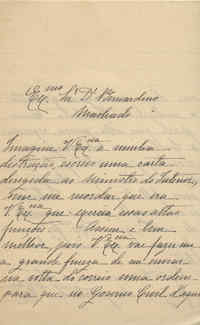 Exmo Sr. Dr. Bernardino
Machado
Imagine V. Excia a minha
distração, escrevi uma carta
dirigida ao Ministro do Interior,
sem me recordar que era
V. Excia que exercia essas altas
funções. Assim é bem
melhor, pois V. Excia vai fazer-me
a grande fineza de me enviar
na volta do correio uma ordem
para que no Governo Civil